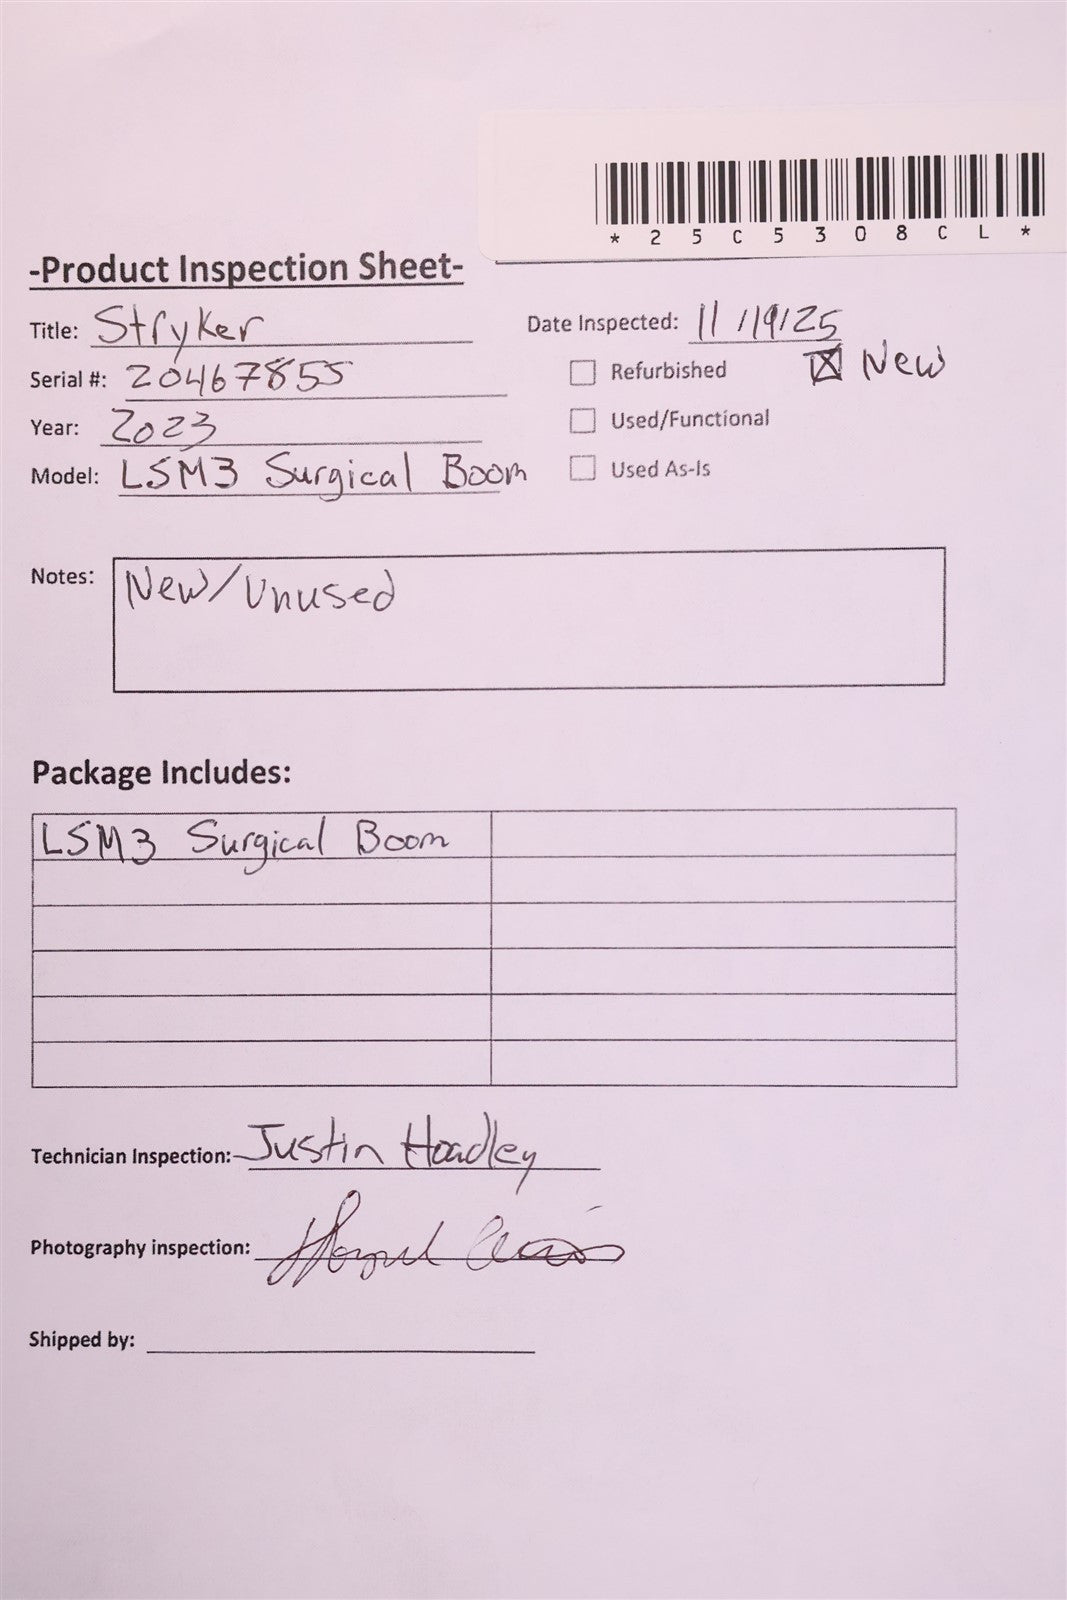 *25C5308CL*
-Product Inspection Sheet-
Title: Stryker
Date Inspected: 11/19/25
Serial #: 20467855
Refurbished
New
Year: 2023
Used/Functional
Model: LSM3 Surgical Boom
Used As-Is
Notes: New/Unused
Package Includes:
LSM3 Surgical Boom
Technician Inspection: Justin Hoadley
Photography inspection:
Shipped by: